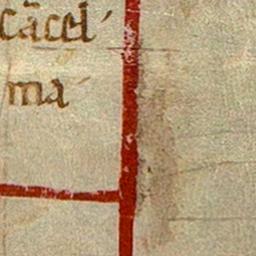 cãcel
ma